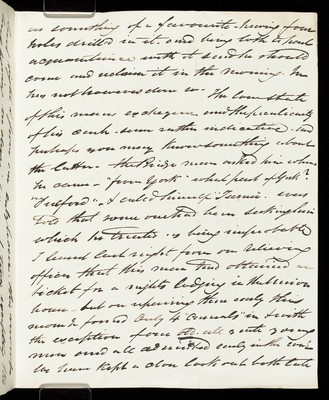 as something of a favourite - having four
holes drilled in it - and being loth to part
acquaintance with it said he should
come and reclaim it in the morning. He
has not however done so - The low state
of this mans exchequer and the peculiarity
of his cash - seem rather indicative - and
perhaps you may know something about
the latter - the Bridge man asked him where
he came - "from York" - what part of York?
"Fulford" - & called himself "Jarvis" - was
told that some one had been seeking him
which he treated as being improbable
I learnt last night from our relieving
officer that this man had obtained a
ticket for a nights lodging in the Union
house - but on repairing there early this
morng I found only 4 "Casuals" in & with
the exception of one old - all quite young
men and all admitted early in the evening
We have kept a close look out both late